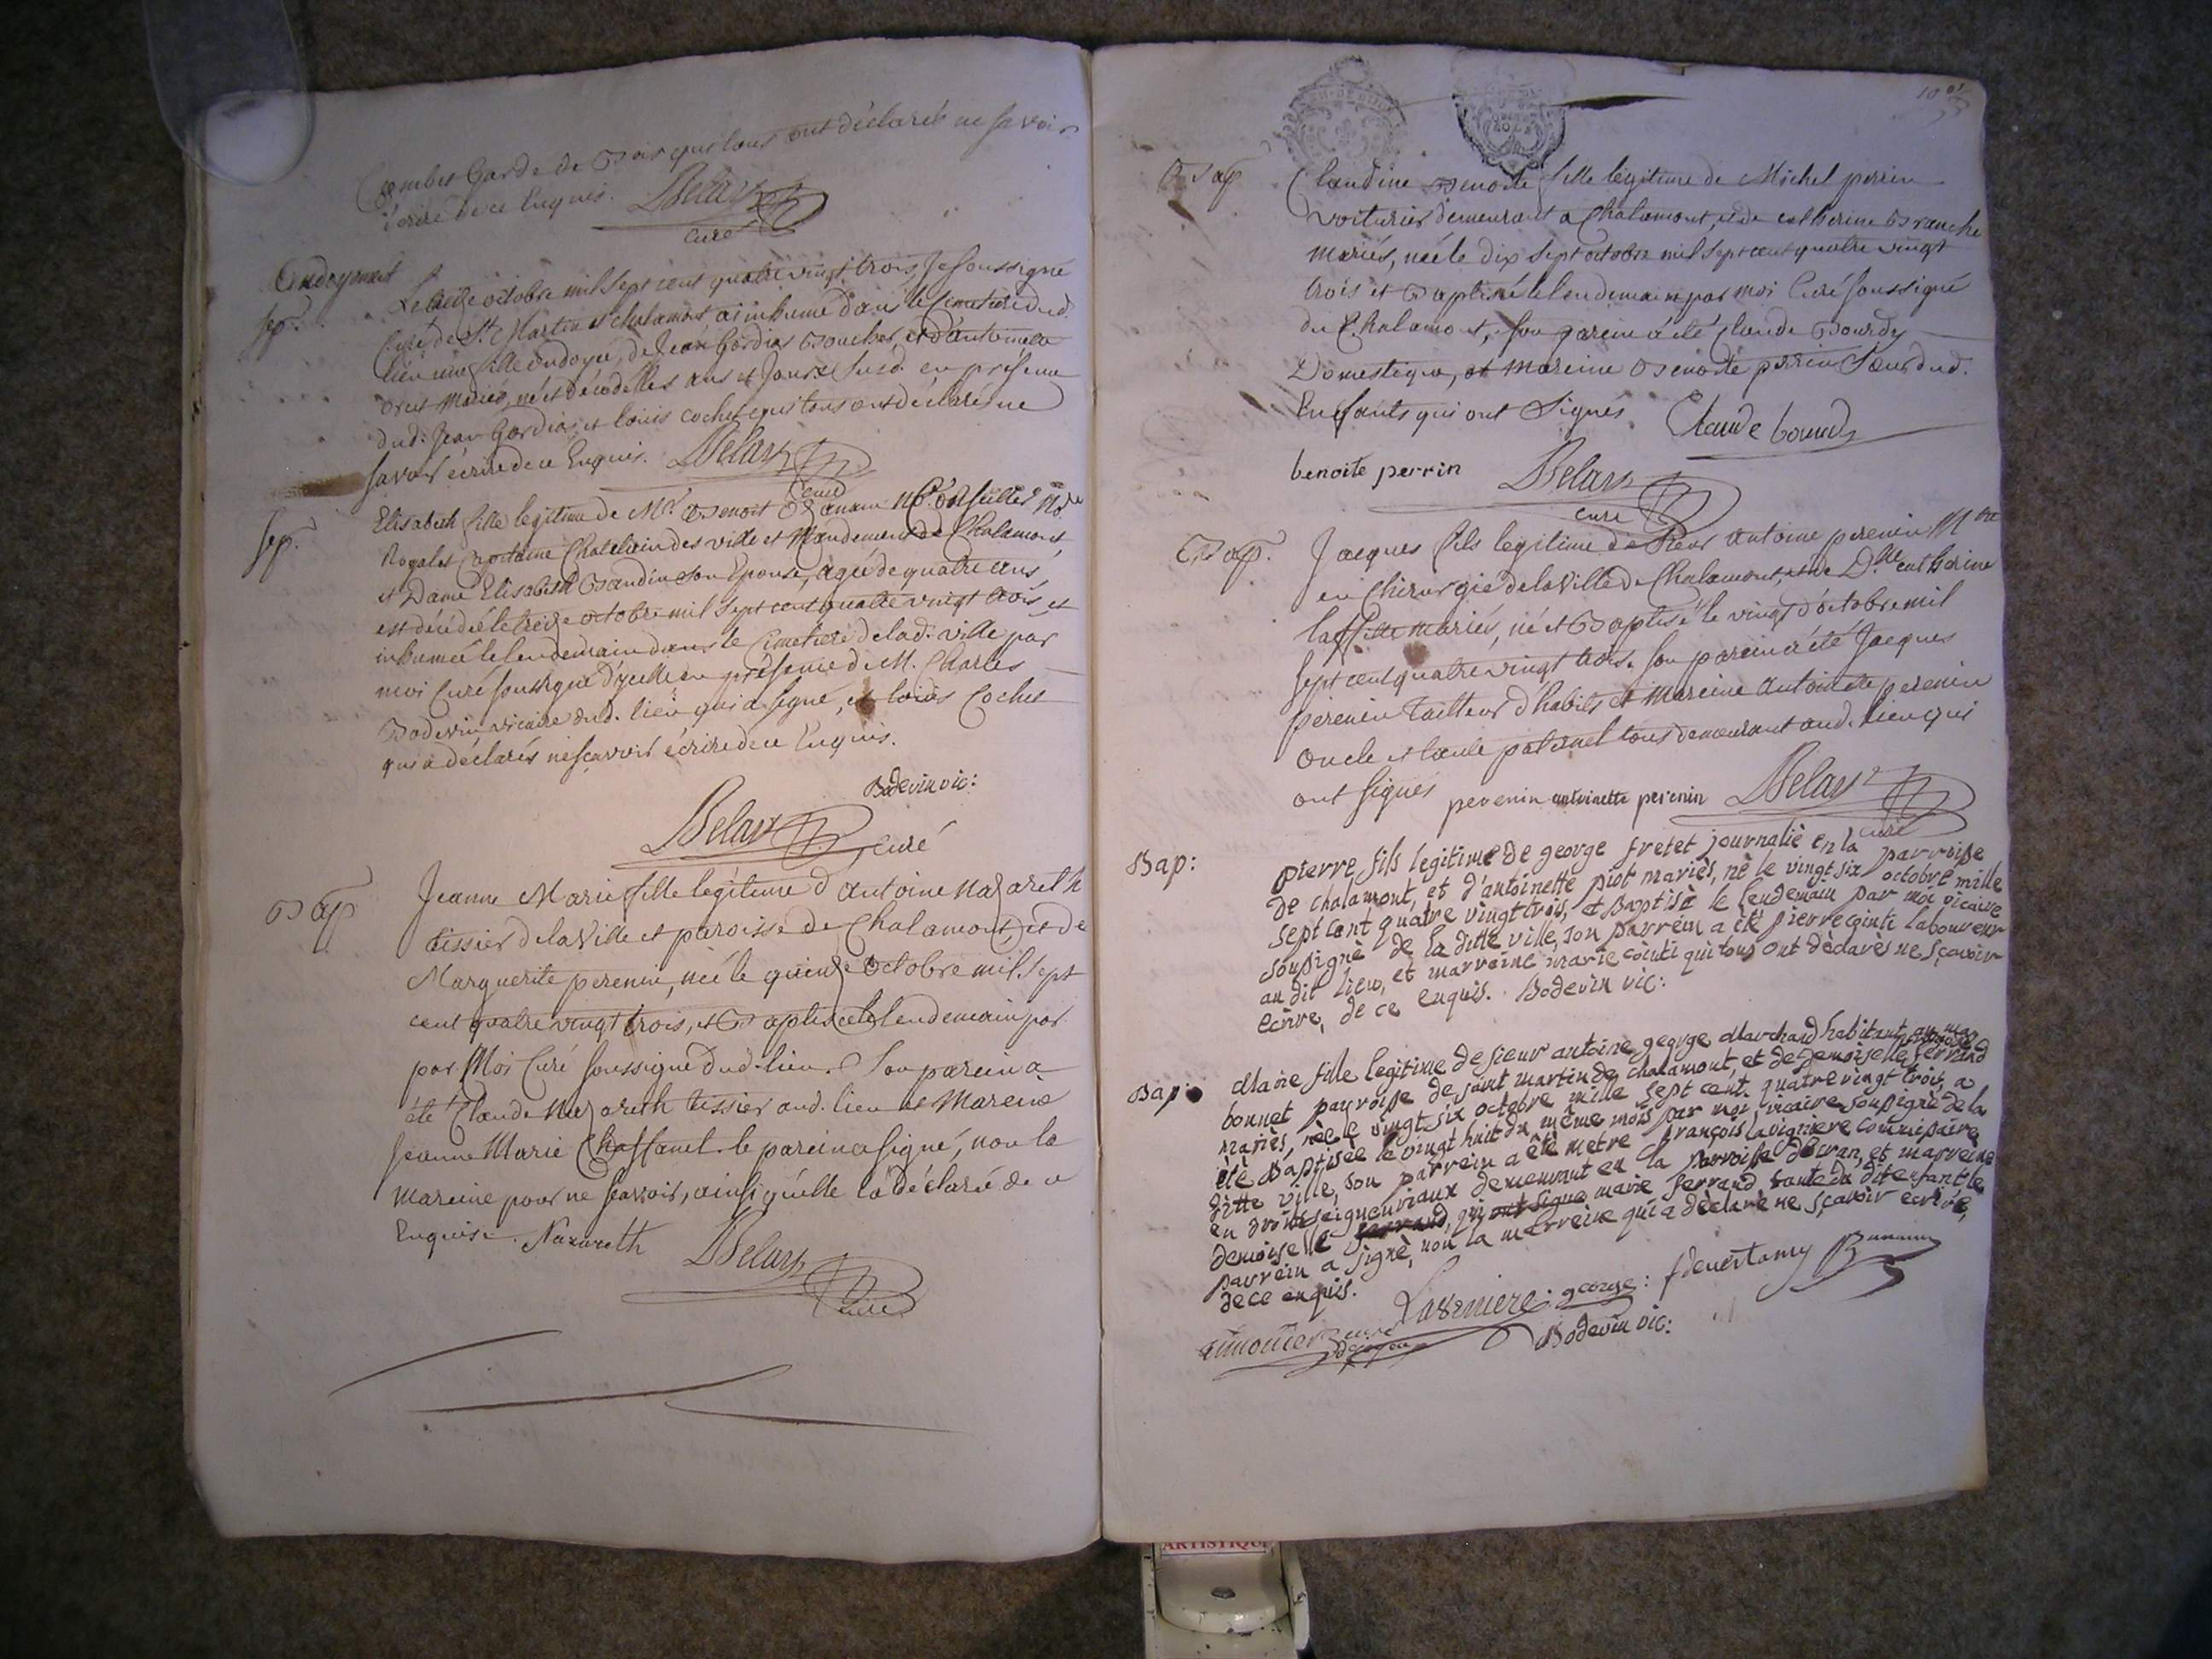 Combes Garde de Bois qui tous ont déclarés ne savoir
écrire de ce Enquis. Delarx
curé
Ondoyment
sep.
Le treize octobre mil sept cent quatre vingt trois, Je soussigné
Curé de St. Martin de chalamont ai inhumé dans le Cimetiere dud.
lieu une fille ondoyée, de Jean Gordias Boucher, et d'antoinette
mariés, née et décédée les ans et Jours susd. en présence
dud. Jean Gordias, et louis cochet qui tous ont déclarés ne
savoir écrire de ce Enquis. Delarx
Curé
sep.
Elisabeth fille legitime de Mr. Benoit
Royales Capitaine Chatelain des ville et Mandement de Chalamont,
et Dame Elisabeth Baudin son Epouse, agée de quatre ans,
est décédé le treize octobre mil sept cent quatre vingt trois, et
inhumée le lendemain dans le Cimetiere de lad. ville par
moi Curé soussigné d'ycelle en présence de M. Charles
Bodevin vicaire dud. lieu qui a signé, et louis Cochet
qui a déclarés ne sçavoir écrire de ce Enquis.
Bodevin vic:
Delarx curé
Bap
Jeanne Marie fille legitime d'antoine nazareth
tissier de la Ville et paroisse de Chalamont, et de
Marguerite perenin, née le quinze octobre mil sept
cent quatre vingt trois, et Baptisée le lendemain par
par Moi Curé soussigné dud. lieu. Son parein a
été Claude Nazareth tissier aud. lieu et Mareine
Jeanne Marie Chassanel. le parein a signé, non la
mareine pour ne sçavoir, ainsi qu'elle l'a déclaré de ce
Enquise. Nazareth Delarx
curé
Bap
Claudine Benoite fille légitime de Michel perrin
voiturier demeurant a Chalamont, et de catherine Branche
mariés, née le dix sept octobre mil sept cent quatre vingt
trois et Baptisée le lendemain par moi Curé soussigné
du Chalamont, son parein a été Claude Bourdy
Domestique, et mareine Benoite perrin Sœur dud.
Enfants qui ont Signés. Claude bourdy
benoite perrin Delarx
curé
Bap.
Jacques fils legitime de Sieur antoine perenin Mtre
en Chirurgie de la Ville de Chalamont, et de Dlle catherine
laffitte mariés, né et Baptisé le vingt d'octobre mil
sept cent quatre vingt trois. son parein a été Jacques
perenin Tailleur d'habits et mareine antoinette perenin
oncle et tante paternel tous demeurant aud. lieu qui
ont signés perenin antoinette perenin Delarx
curé
Bap:
pierre fils legitime de george fretet journaliè en la parroisse
de chalamont, et d'antoinette piot mariès, nè le vingt six octobre mille
sept cent quatre vingt trois, et Baptisè le lendemain par moi vicaire
soussignè de la ditte ville, son parrein a ètè pierre cointi laboureur
au dit lieu, et marreine marie cointi qui tous ont dèclarès ne sçavoir
ecrire, de ce enquis. Bodevin vic:
Bap:
Marie fille legitime de sieur antoine george Marchand habitant au mas
bonnet parroisse de saint martin de chalamont, et de Demoiselle ferrand
mariès, nèe le vingt six octobre mille sept cent quatre vingt trois, a
ètè Baptisèe le vingt huit du même mois par moi vicaire soussignè de la
ditte ville, son parrein a ètè metre françois lavigniere commissaire
en droits seigneuriaux demeurant en la parroisse et marreine
demoiselle ferrand, qui ont signe marie ferrand tante du dit enfant le
parrein a signè, non la marreine qui a dèclarè ne sçavoir ecrire,
de ce enquis.
Lavigniere. george:
Bodevin vic: